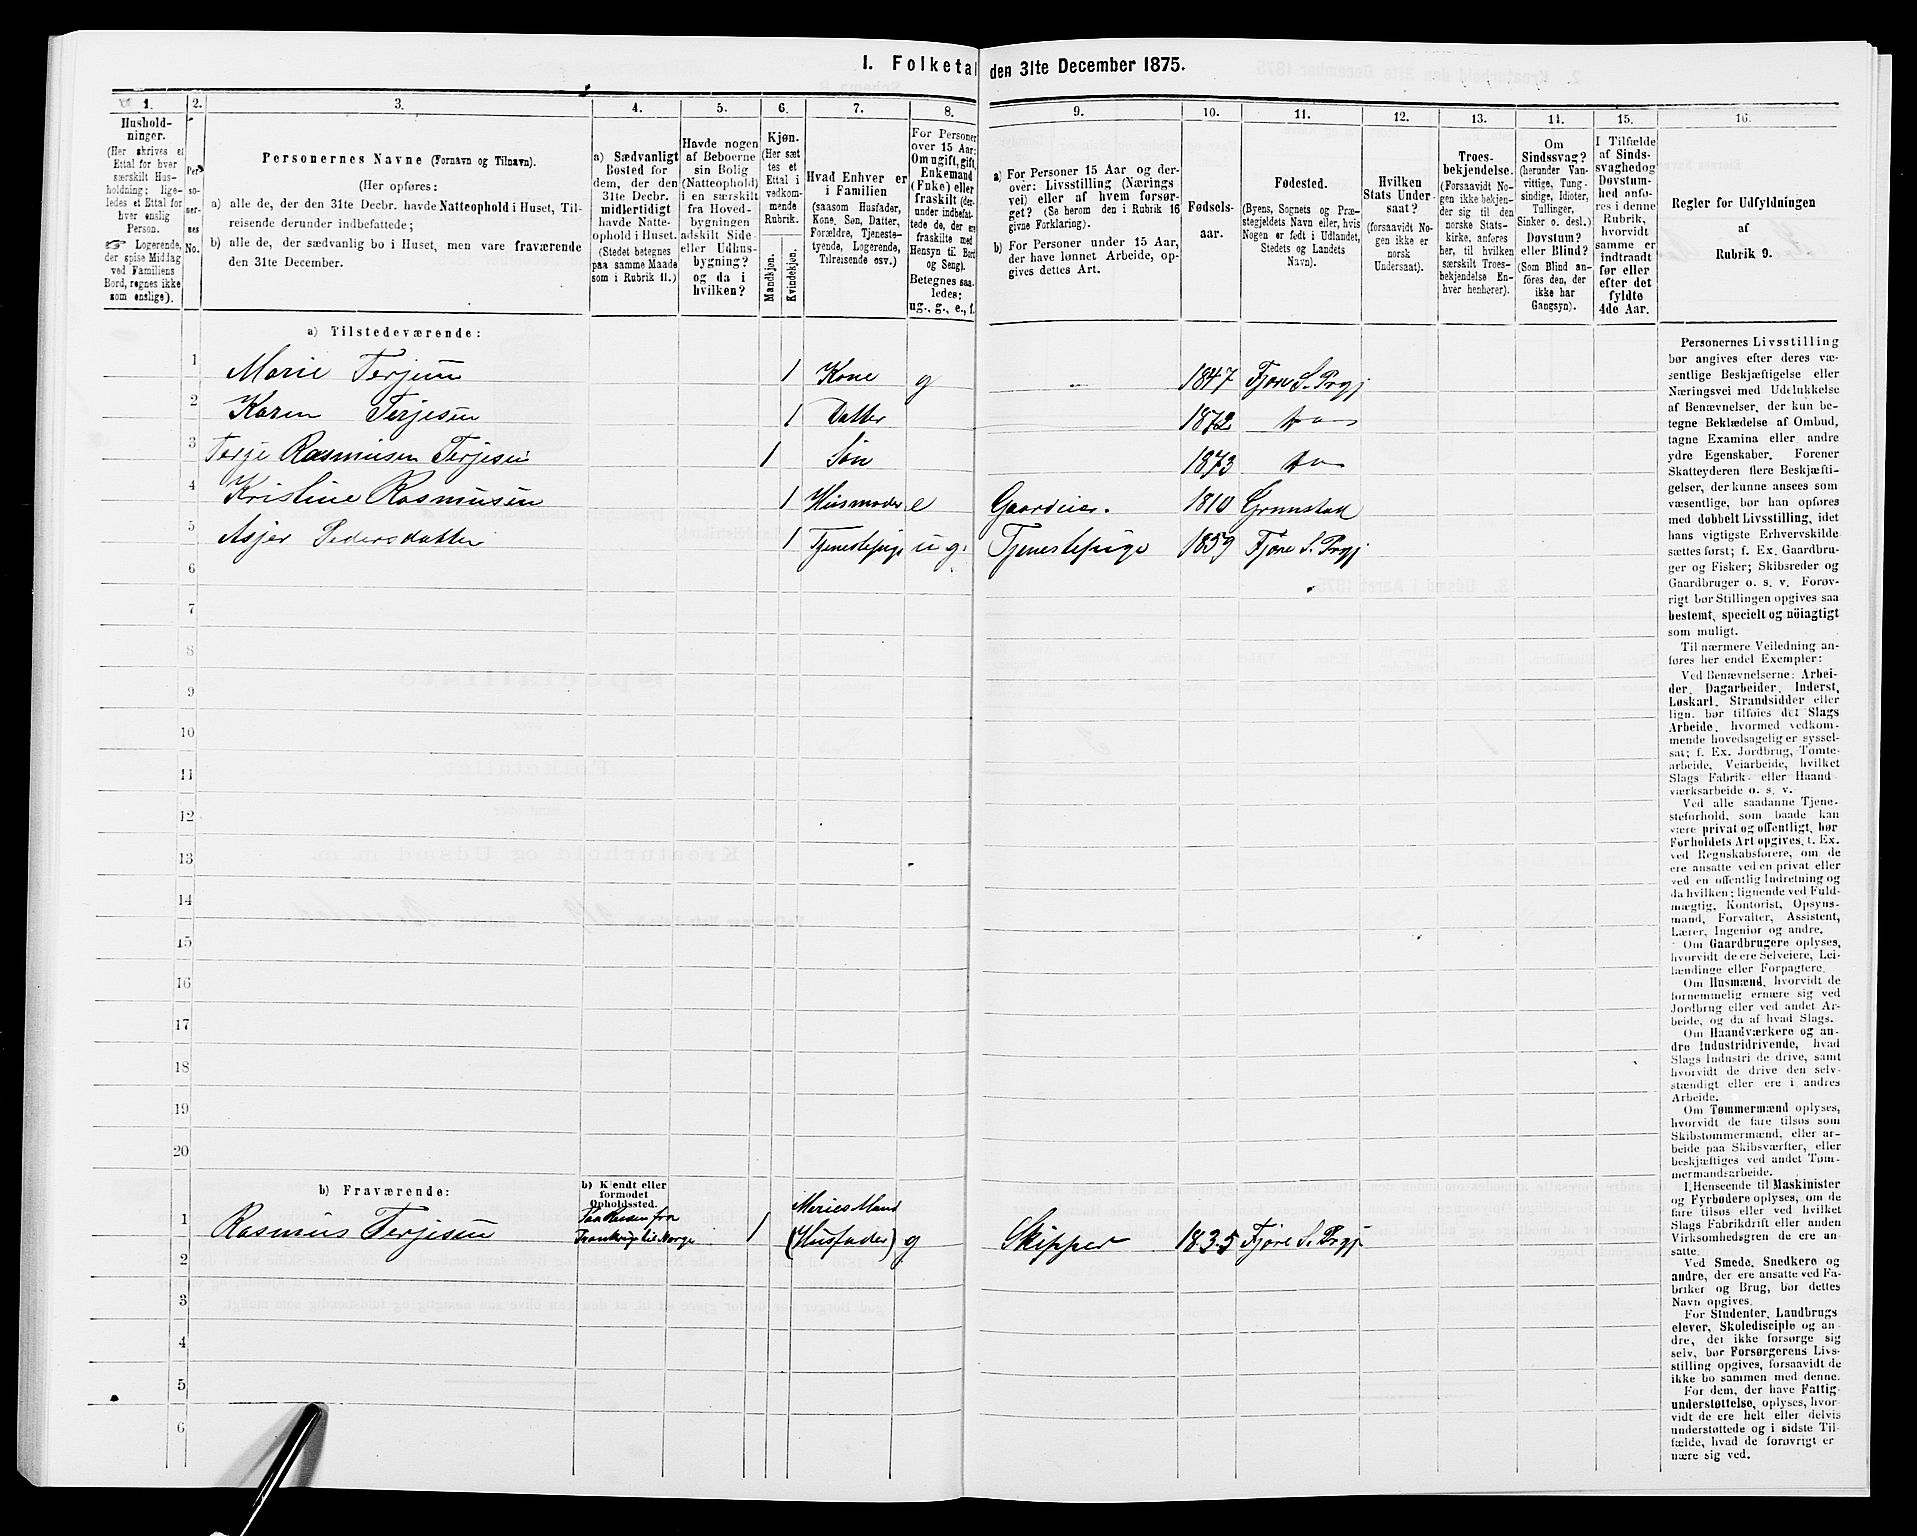 I. Folketal den 31te December 1875.
1. 2. 3. 4. 5. 6. 7. 8. 9. 10. 11. 12. 13. 14. 15. 16.
Hushold-
ninger.
(Her skrives et
Ettal for hver
særskilt Hus-
holdning; lige-
ledes et Ettal for
hver enslig
Person.
☞ Logerende,
der spise Middag
ved Familiens
Bord, regnes ikke
som enslige).
Per-
so-
ner-
nes
No.
Personernes Navne (Fornavn og Tilnavn).
(Her opføres:
a) alle de, der den 31te Decbr. havde Natteophold i Huset, Til-
reisende derunder indbefattede;
b) alle de, der sædvanlig bo i Huset, men vare fraværende
den 31te December.
a) Sædvanligt
Bosted for
dem, der den
31te Decbr.
midlertidigt
havde Natte-
ophold i Huset.
(Stedet betegnes
paa samme Maade
som i Rubrik 11.)
Havde nogen
af Beboerne
sin Bolig
(Natteophold)
i en særskilt
fra Hoved-
bygningen
adskilt Side-
eller Udhus-
bygning?
og da i
hvilken?
Kjøn.
(Her sæt-
tes et
Ettal i
vedkom-
mende
Rubrik.
Mandkjøn.
Kvindekjøn.
Hvad Enhver er
i Familien
(saasom Husfader,
Kone, Søn, Datter,
Forældre, Tjeneste-
tyende, Logerende,
Tilreisende osv.)
For Personer
over 15 Aar:
Om ugift, gift,
Enkemand
(Enke) eller
fraskilt (der-
under indbefat-
tede de, der ere
fraskilte med
Hensyn til Bord
og Seng).
Betegnes saa-
ledes:
ug., g., e., f.
a) For Personer 15 Aar og der-
over: Livsstilling (Nærings-
vei) eller af hvem forsør-
get? (Se herom den i Rubrik 16
givne Forklaring).
b) For Personer under 15 Aar,
der have lønnet Arbeide, op-
gives dettes Art.
Fødsels-
aar.
Fødested.
(Byens, Sognets og Præ-
stegjeldets Navn eller, hvis
Nogen er født i Udlandet,
Stedets og Landets
Navn).
Hvilken
Stats Under-
saat?
(forsaavidt No-
gen ikke er
norsk
Undersaat).
Troes-
bekjendelse.
(Forsaavidt No-
gen ikke bekjen-
der sig til den
norske Stats-
kirke, anføres
her, til hvilken
særskilt Troes-
bekjendelse En-
hver henhører).
Om
Sindssvag?
(herunder Van-
vittige, Tung-
sindige, Idioter,
Tullinger,
Sinker o. desl.)
Døvstum?
eller Blind?
(Som Blind an-
føres den, der
ikke har
Gangsyn).
I Tilfælde
af Sinds-
svaghed og
Døvstum-
hed anfø-
res i denne
Rubrik,
hvorvidt
samme er
indtraadt
før eller
efter det
fyldte
4de Aar.
Regler for Udfyldningen
af
Rubrik 9.
a) Tilstedeværende:
1 Marie Terjesen 1 Kone g 1847 Fjøre S. Prgj
2 Karen Terjesen 1 Datter 1872
3 Terje Rasmusen Terjesen 1 Søn 1873
4 Kristine Rasmusen 1 Husmoder e Gaardeier. 1810 Grimstad
5 Asjer Pedersdatter 1 Tjenestepige ug. Tjenestepige 1859 Fjøre S. Prgj
6
7
8
9
10
11
12
13
14
15
16
17
18
19
20
b) Fraværende:
b) Kjendt eller
formodet
Opholdssted.
Maries Mand
1 Rasmus Terjesen Paa Reisen fra Frankrig til Norge 1 (Husfader) g Skipper 1835 Fjøre S. Prgj
2
3
4
5
6
Personernes Livsstilling
bør angives efter deres væ-
sentlige Beskjæftigelse eller
Næringsvei med Udelukkelse
af Benævnelser, der kun be-
tegne Beklædelse af Ombud,
tagne Examina eller andre
ydre Egenskaber. Forener
Skatteyderen flere Beskjæfti-
gelser, der kunne ansees som
væsentlige, bør han opføres
med dobbelt Livsstilling, idet
hans vigtigste Erhvervskilde
sættes først; f. Ex. Gaardbru-
ger og Fisker; Skibsreder og
Gaardbruger o. s. v. Forøv-
rigt bør Stillingen opgives saa
bestemt, specielt og nöiagtigt
som muligt.
Til nærmere Veiledning an-
føres her endel Exempler:
Ved Benævnelserne: Arbei-
der, Dagarbeider, Inderst,
Løskarl, Strandsidder eller
lign. bør tilføies det Slags
Arbeide, hvormed vedkom-
mende hovedsagelig er syssel-
sat; f. Ex. Jordbrug, Tomte-
arbeide, Veiarbeide, hvilket
Slags Fabrik- eller Haand-
værksarbeide o. s. v.
Ved alle saadanne Tjene-
steforhold, som baade kan
være privat og offentligt, bør
Forholdets Art opgives, t. Ex.
ved Regnskabsførere, om de
ere ansatte ved en privat eller
ved en offentlig Indretning og
da hvilken; lignende ved Fuld-
mægtig, Kontorist, Opsyns-
mand, Forvalter, Assistent,
Lærer, Ingeniør og andre.
Om Gaardbrugere oplyses,
hvorvidt de ere Selveiere, Lei-
lændinge eller Forpagtere.
Om Husmænd, hvorvidt de
fornemmelig ernære sig ved
Jordbrug eller ved andet Ar-
beide, og da af hvad Slags.
Om Haandværkere og an-
dre Industridrivende, hvad
Slags Industri de drive, samt
hvorvidt de drive den selv-
stændigt eller ere i andres
Arbeide.
Om Tømmermænd oplyses,
hvorvidt de fare tilsøs som
Skibstømmermænd, eller ar-
beide paa Skibsværfter, eller
beskjæftiges ved andet Tøm-
mermandsarbeide.
I Henseende til Maskinister
og Fyrbødere oplyses, om de
fare tilsøs eller ved hvilket
Slags Fabrikdrift eller anden
Virksomhedsgren de ere an-
satte.
Ved Smede, Snedkere og
andre, der ere ansatte ved Fa-
briker og Brug, bør dettes
Navn opgives.
For Studenter, Landbrugs-
elever, Skoledisciple og an-
dre, der ikke forsørge sig
selv, bør Forsørgerens Livs-
stilling opgives, forsaavidt de
ikke bo sammen med denne.
For dem, der have Fattig-
understøttelse, oplyses, hvor-
vidt de ere helt eller delvis
understøttede og i sidste Til-
fælde, hvad de forøvrigt er-
nære sig ved.